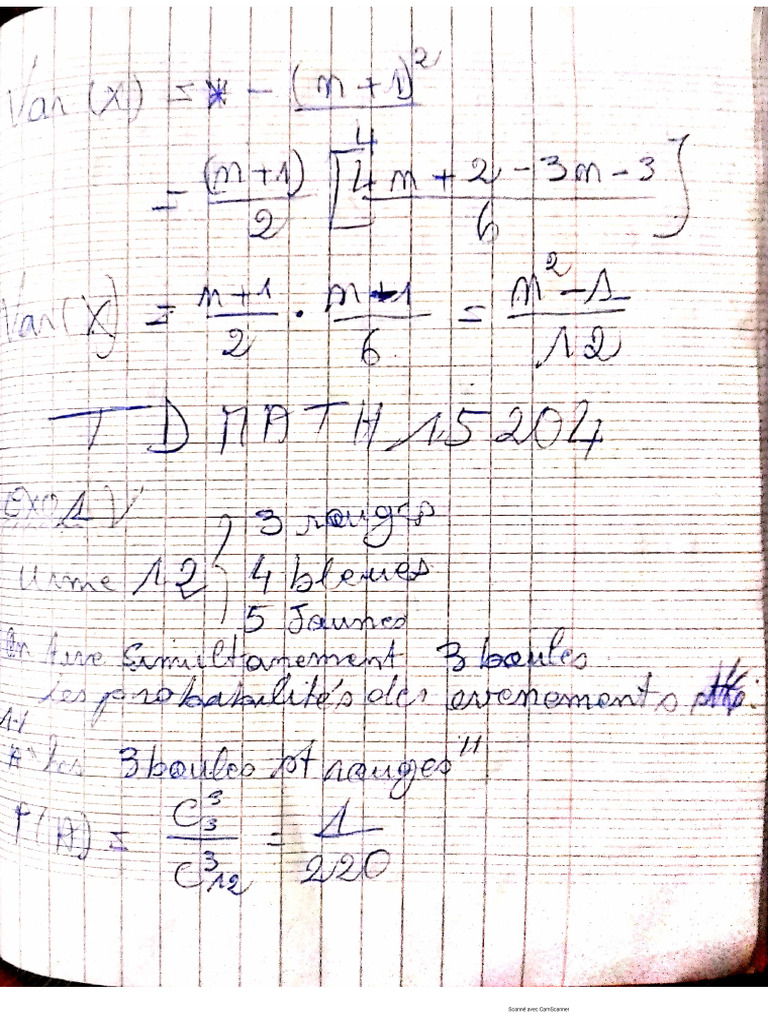 Var(X) = * - (n+1)²/4
= (n+1)/2 [4n+2-3n-3/6]
Var(X) = n+1/2 . n-1/6 = n²-1/12
TD MATH 15204
EXO1)
3 rouges
Urne 12 { 4 bleues
5 Jaunes
On tire Simultanement 3 boules
les probabilités des evenements
1-1
A "les 3 boules st rouges"
P(A) = C³₃/C³₁₂ = 1/220
Scanné avec CamScanner